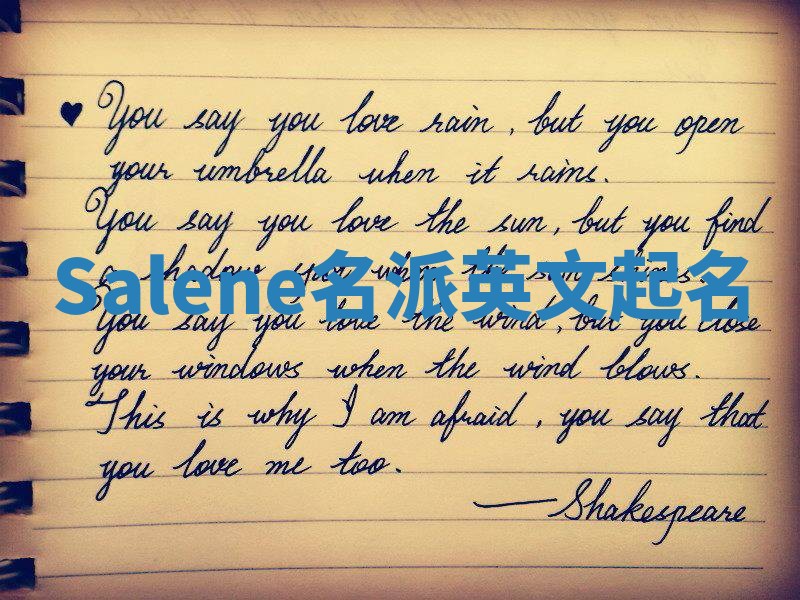 ♥ You say you love rain, but you open
your umbrella when it rains.
You say you love the sun, but you find
a shadow spot when the sun shines.
Salene名派英文起名
You say you love the wind, but you close
your windows when the wind blows.
This is why I am afraid, you say that
you love me too.
—Shakespeare